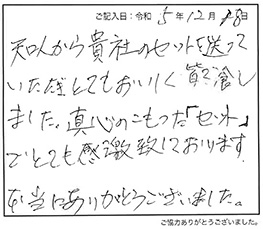 ご記入日：令和 5年12月18日
知人から貴社のセットを送って
いただきとてもおいしく賞味
しました。真心のこもった「セット」
でとても感激致しております
本当にありがとうございました。
ご協力ありがとうございました。